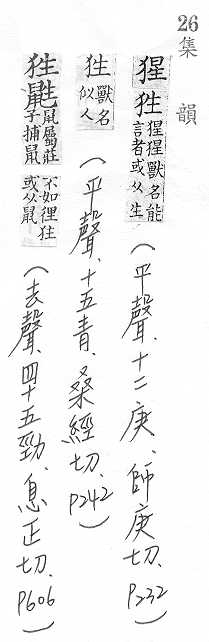 26
集韻
猩狌猩猩獸名能言者或从生(平聲、十二庚、師庚切、P232)
狌獸名似人(平聲、十五青、桑經切、P242)
狌鼪鼠屬莊子捕鼠不如狸狌或从鼠(去聲、四十五勁、息正切、P606)